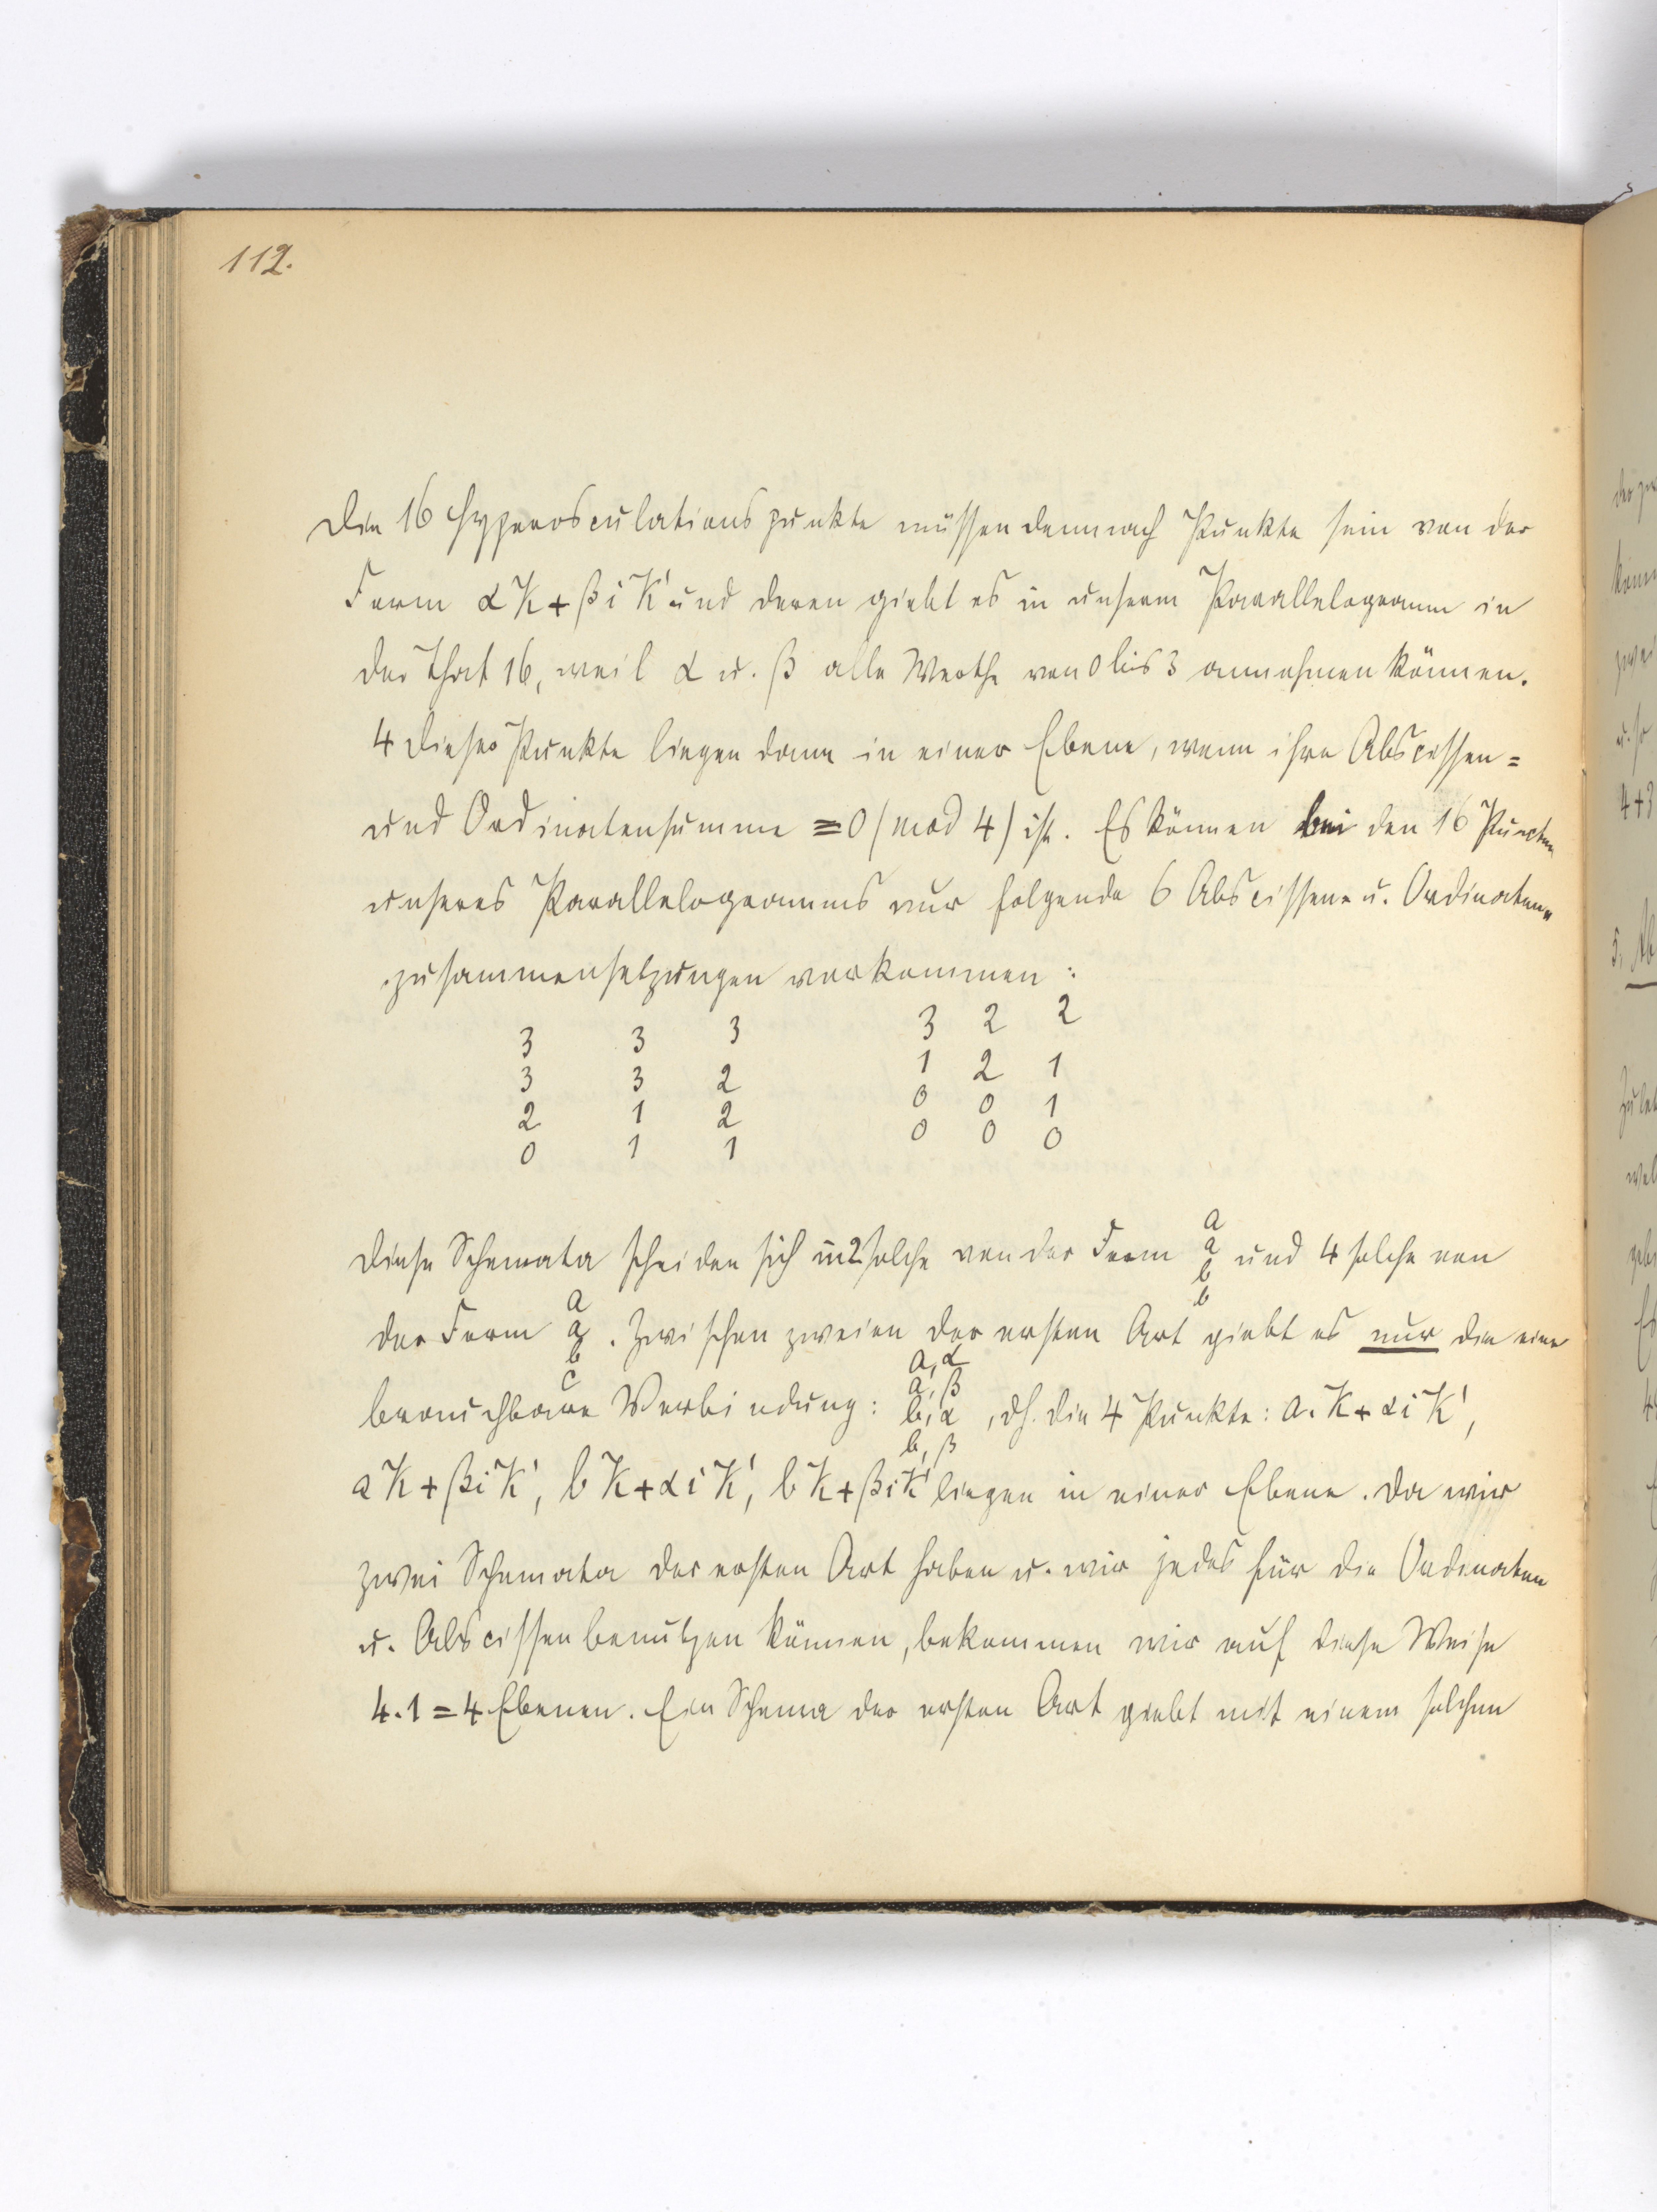 112.
Die 16 Hyperosculationspunkte müssen demnach Punkte sein von der
Form αK + βiK' und deren giebt es in unserm Parallelogramm in
der That 16, weil α u. β alle Werthe von 0 bis 3 annehmen können.
4 dieser Punkte liegen dann in einer Ebene, wenn ihre Abscissen=
und Ordinatensumme ≡ 0 (mod 4) ist. Es können bei den 16 Puncten
unseres Parallelogramms nur folgende 6 Abscissen- u. Ordinaten-
zusammensetzungen vorkommen:
3 3 3 3 2 2
3 3 2 1 2 1
2 1 2 0 0 1
0 1 1 0 0 0
Diese Schemata scheiden sich in 2 solche von der Form a a b b und 4 solche von
der Form a a b c. Zwischen zweien der ersten Art giebt es nur die eine
brauchbare Verbindung: a,α a,β b,α b,β, dh. die 4 Punkte: a.K + αiK',
aK + βiK', bK + αiK', bK + βiK' liegen in einer Ebene. Da wir
zwei Schemata der ersten Art haben u. wir jedes für die Ordinaten
u. Abscissen benutzen können, bekommen wir auf diese Weise
4.1 = 4 Ebenen. Ein Schema der ersten Art giebt mit einem solchen